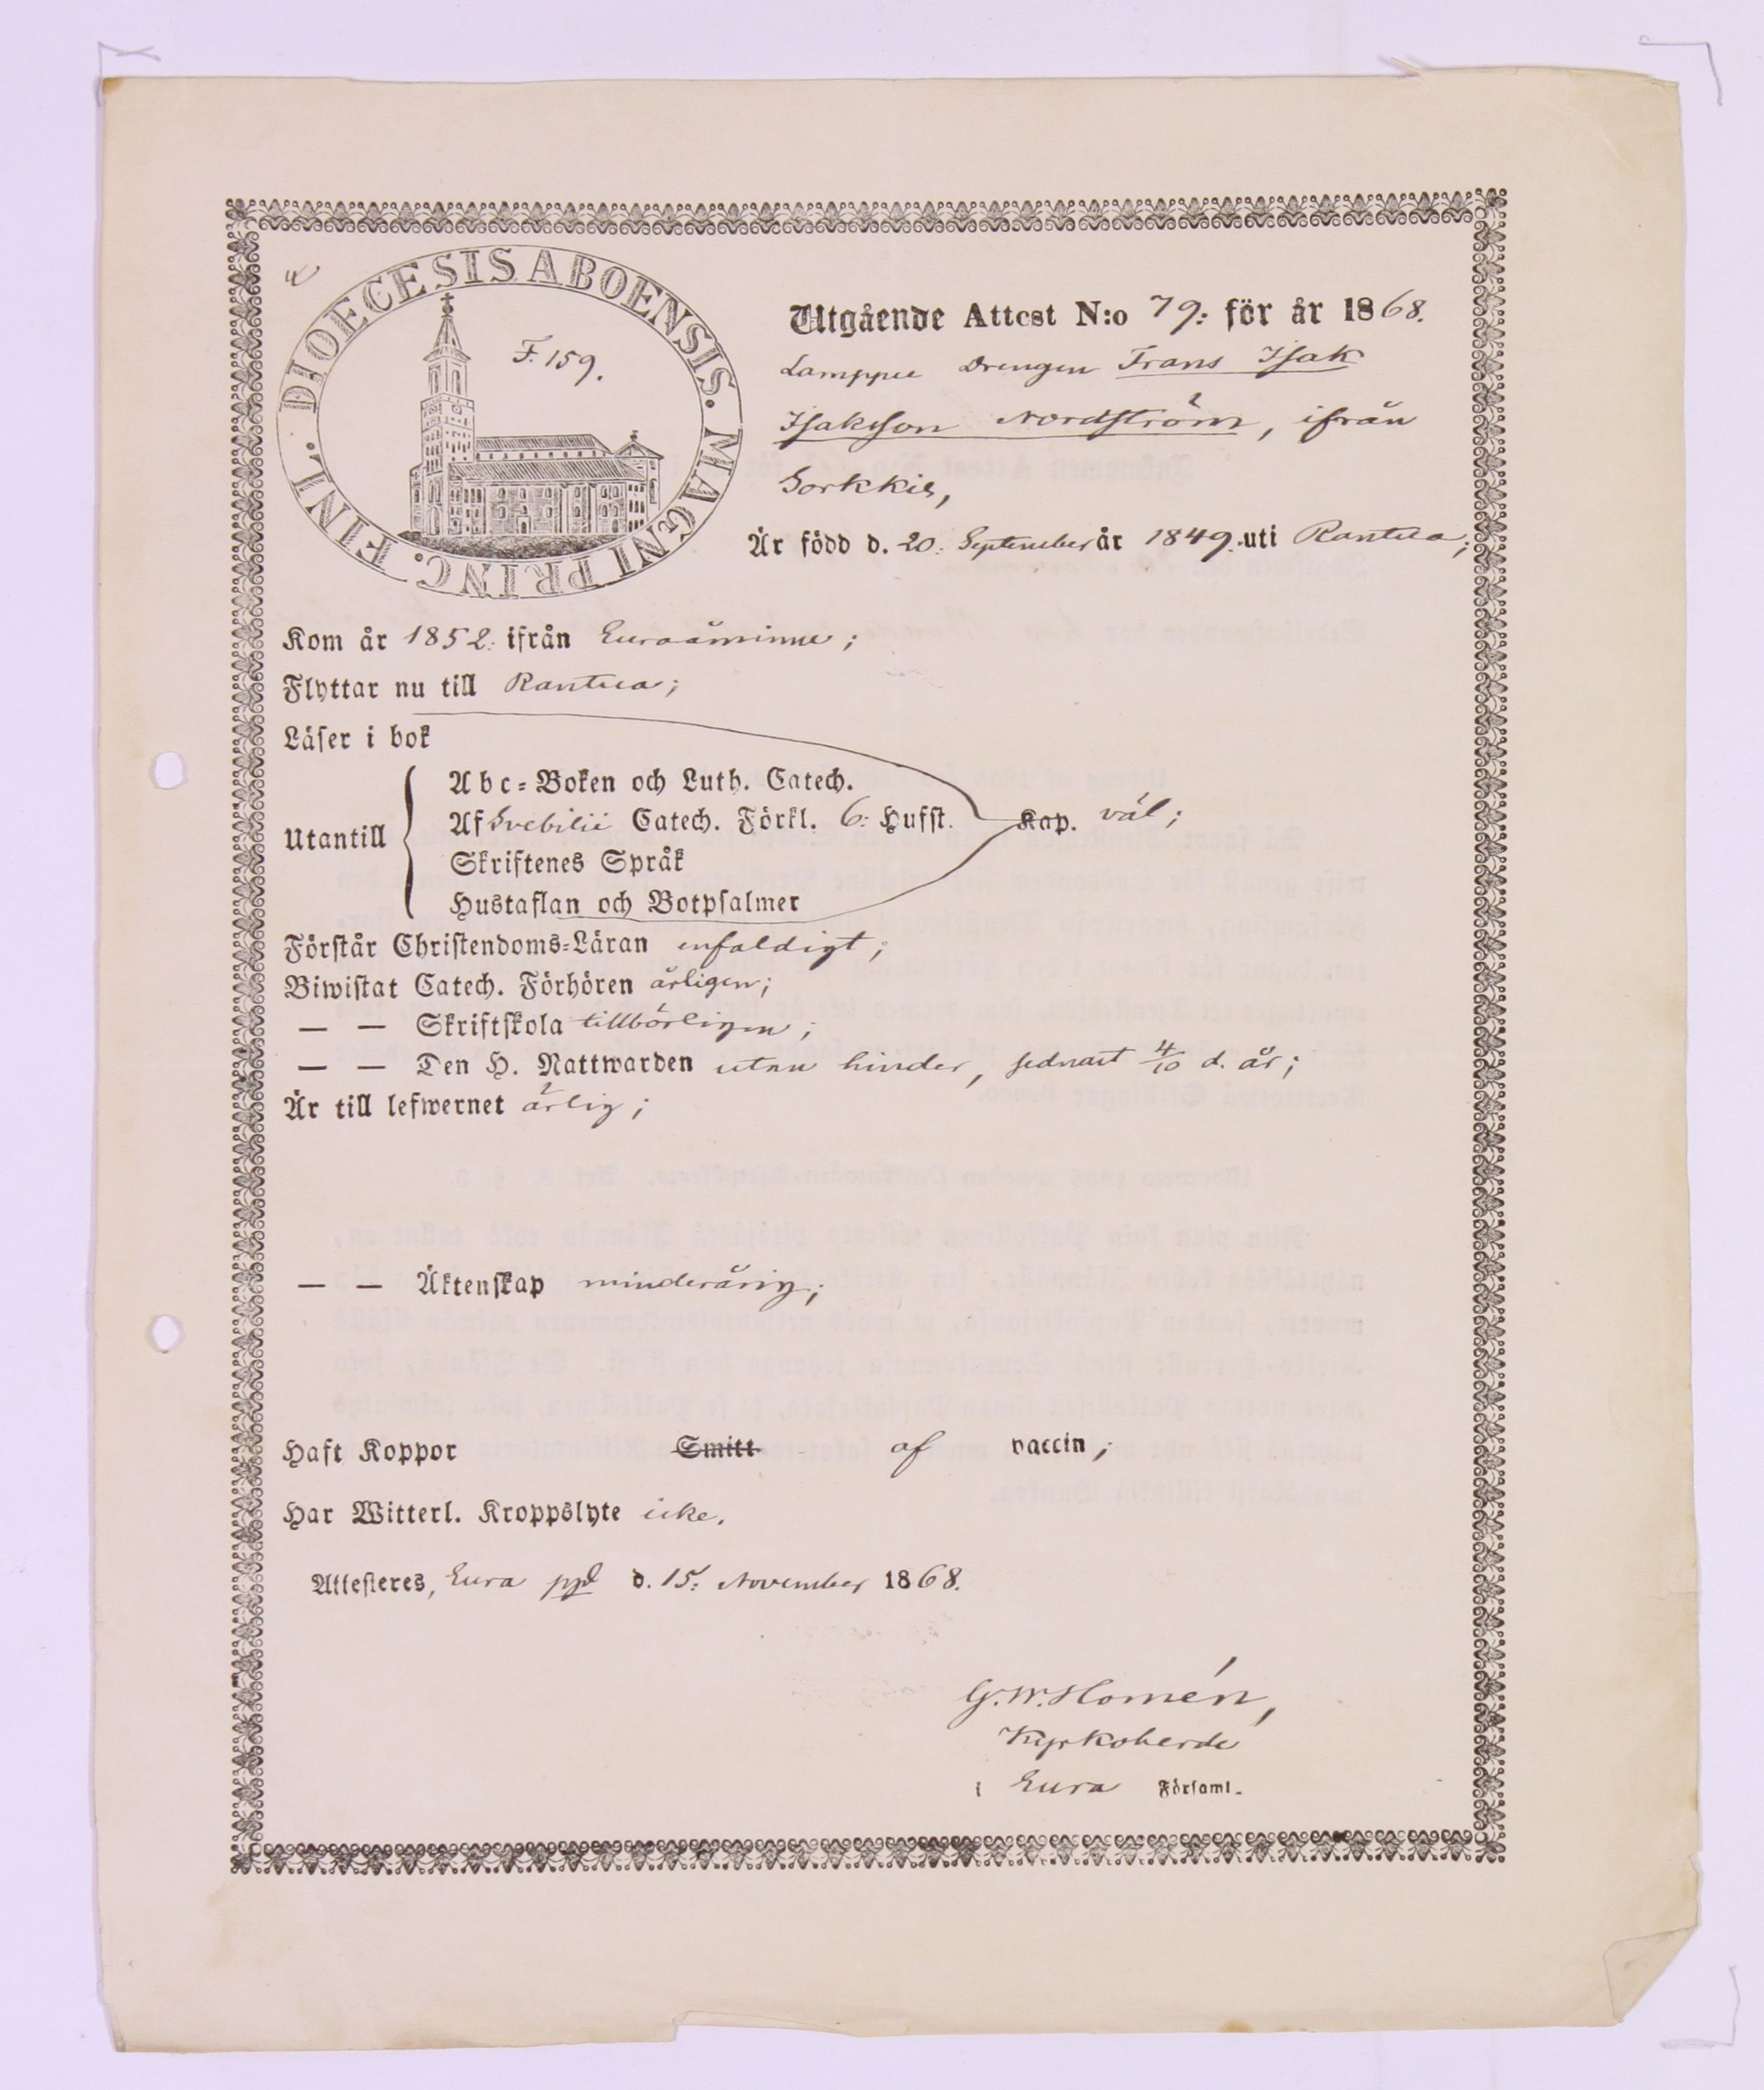 DIOECESIS ABOENSIS. MAGNI PRINC. FINL.
F. 159.
Utgående Attest N:o 79: för år 1868.
Drengen Frans Isak
Isaksson Nordström, ifrån
Sorkkis,
Är född d. 20: September år 1849. uti Rantila;
Kom år 1852: ifrån Euraåminne;
Flyttar nu till Rantila;
Läser i bok
Utantill
Abc-Boken och Luth. Catech.
Af Svebilii Catech. Förkl. 6: Hufst. Kap. väl;
Skriftenes Språk
Hustaflan och Botpsalmer
Förstår Christendoms-Läran enfaldigt;
Biwistat Catech. Förhören årligen;
— — Skriftskola tillbörligen;
— — Den H. Nattwarden utan hinder, sednast 4/10 d. år;
Är till lefwernet ärlig;
— — Äktenskap minderårig;
Haft Koppor Smitt af vaccin;
Har Witterl. Kroppslyte icke.
Attesteres, Eura pgd d. 15: November 1868.
G. W. Homén,
Kyrkoherde
i Eura Församl.